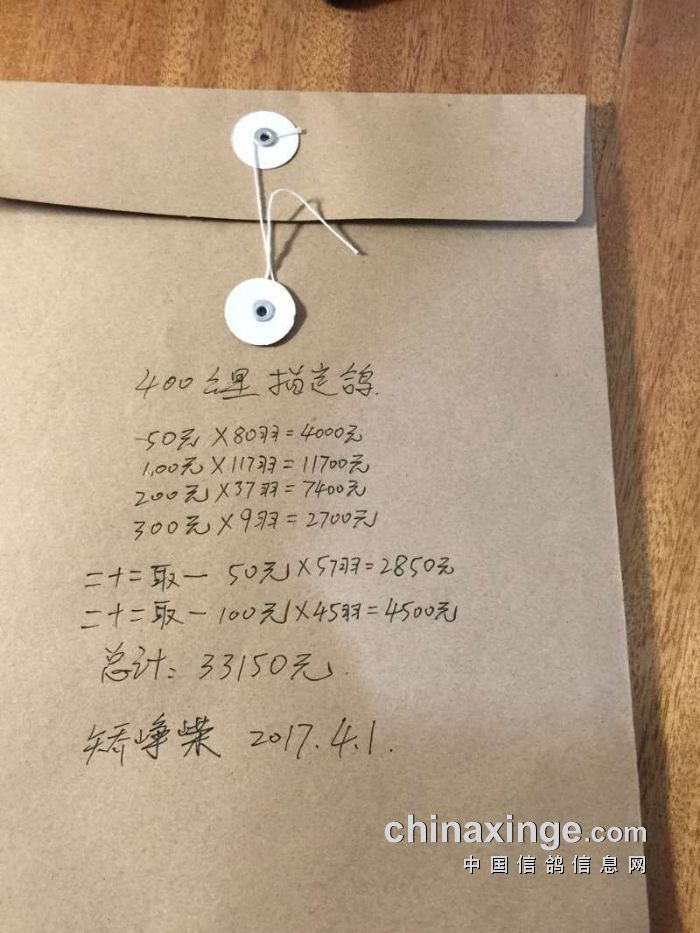 400公里 指定鸽.
50元×80羽=4000元
100元×117羽=11700元
200元×37羽=7400元
300元×9羽=2700元
二十二取一 50元×57羽=2850元
二十二取一 100元×45羽=4500元
总计：33150元.
矫峥嵘 2017.4.1.
chinaxinge.com
中国信鸽信息网